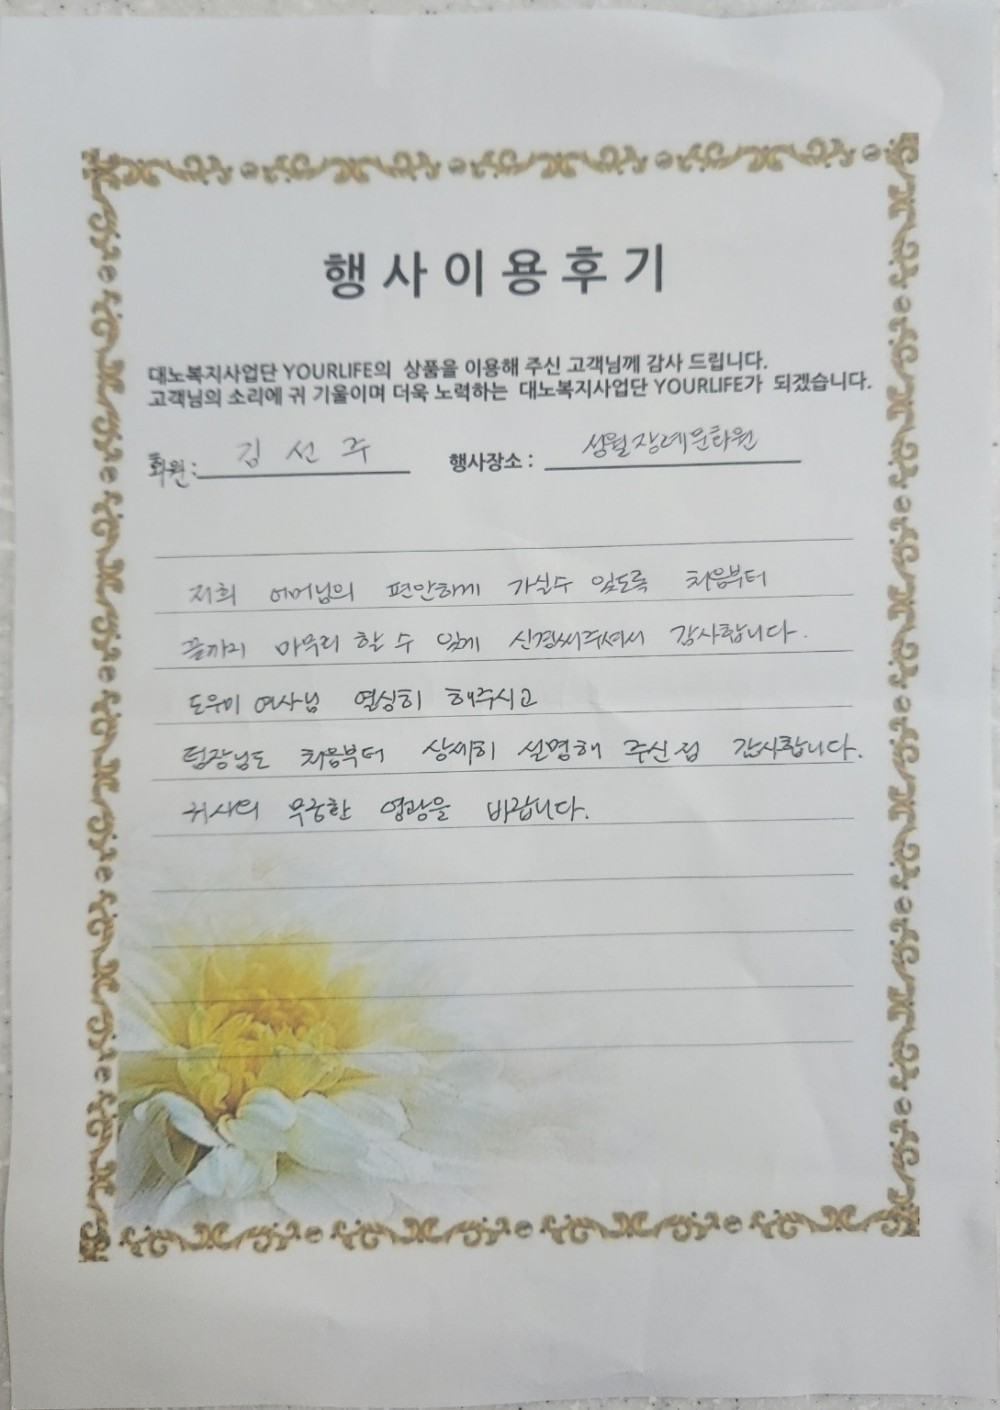 행사이용후기
대노복지사업단 YOURLIFE의 상품을 이용해 주신 고객님께 감사 드립니다.
고객님의 소리에 귀 기울이며 더욱 노력하는 대노복지사업단 YOURLIFE가 되겠습니다.
회원: 김선주 행사장소 : 성월장례문화원
저희 어머님의 편안하게 가실수 있도록 처음부터
끝까지 마무리 할 수 있게 신경써주셔서 감사합니다.
도우미 여사님 열심히 해주시고
팀장님도 처음부터 상세히 설명해 주신점 감사합니다.
귀사의 무궁한 영광을 바랍니다.